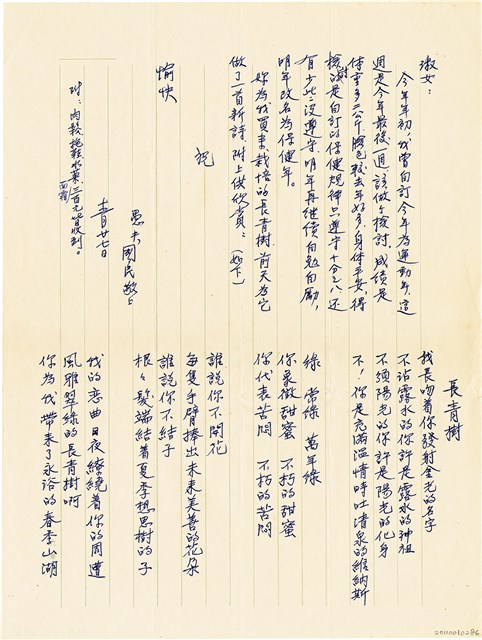 淑女：
今年年初，我曾自訂今年為運動年，這
週是今年最後一週，該做個檢討。成績是
体重多二公斤，臉色較去年好多，身体平安，得
檢討的是自訂的保健規律只遵守十分之八，还
有少些沒遵守，明年再繼續自勉自勵，
明年改名為保健年。
妳為我買來栽培的長青樹，前天為它
做了一首新詩，附上供欣賞：（如下）
祝
愉快
愚夫 國民 敬上
廿七日
附：肉鬆、拖鞋、水菓、面霜、三百元皆收到。
長青樹
我長吻着你發射金光的名字
不沾露水的你許是露水的神祖
不須陽光的你許是陽光的化身
不！你是充滿溫情時吐清泉的維納斯
綠 常綠 萬年綠
你象徵甜蜜 不朽的甜蜜
你代表苦悶 不朽的苦悶
誰說你不開花
每隻手臂捧出未来美善的花朵
誰說你不結子
根々髮端結着夏季想思樹的子
我的恋曲日夜繚繞着你的周遭
風雅翠綠的長青樹啊
你為我帶來了永浴的春季山湖
20110010286